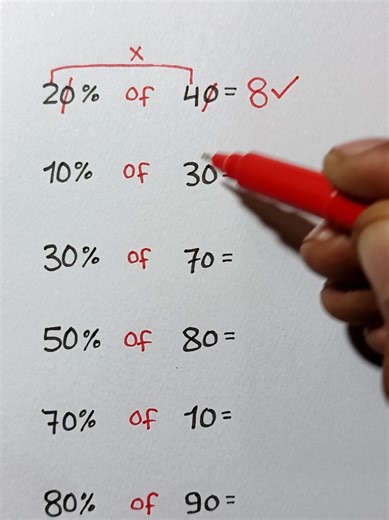 x
20% of 40 = 8✓
10% of 30 =
30% of 70 =
50% of 80 =
70% of 10 =
80% of 90 =